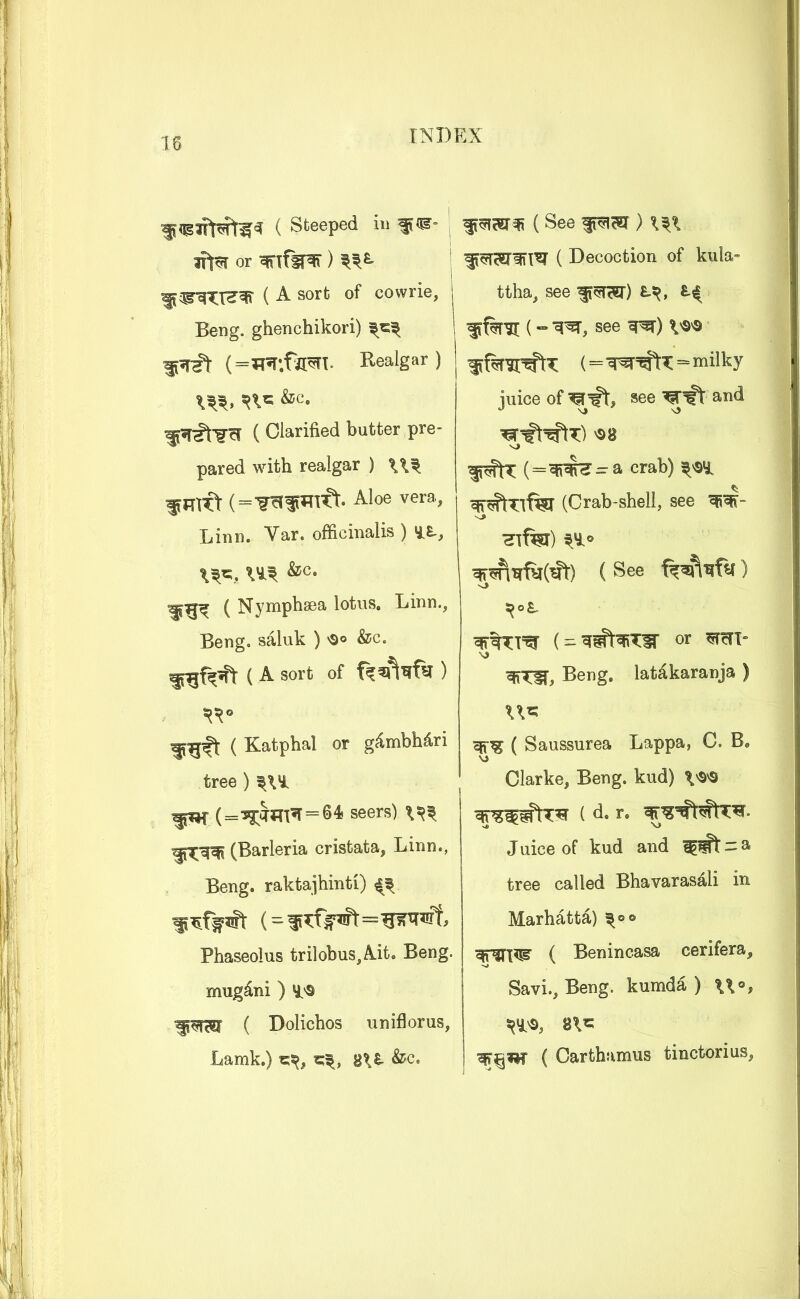 16
INDEX
( Steeped in
or काञ्जिक )
( A sort of cowrie,
Beng. ghenchikori) ३८३
कुनटी (=मनःशिला. Realgar )
&c.
कुनटीघृत ( Clarified butter pre-
pared with realgar ) ११३
कुमारी (=घृतकुमारी. Aloe vera,
Linn. Var. officinalis ) ५९,
१३८, १५३ &c.
कुमुद ( Nymphæa lotus. Linn.,
Beng. sáluk ) ७० &c.
( A sort of )
२२०
कुमुदी ( Katphal or gámbhári
tree ) ३१५
कुम्भ (= =64 seers) १२३
कुरवक (Barleria cristata, Linn.,
Beng. raktajhintí) ६३
Phaseolus trilobus, Ait. Beng.
mugáni ) ५७
कुलत्थ ( Dolichos uniflorus,
Lamk.) ८२, ८३, ४१९ &c.
कुलत्थक ( See कुलत्थ ) १३१
कुलत्थक्वाथ ( Decoction of kula-
ttha, see कुलत्थ) ९२, ९६
कुलिश (=वज्र, see वज्र) १७७
कुलिशक्षीर (=वज्रक्षीर=milky
juice of स्नुही, see स्नुही and
स्नुहीक्षीर) ७४
कुलीर (=कर्कट=a crab) ३७५
कुलीरास्थि (Crab-shell, see कर्क-
टास्थि) ३५०
( See )
२०९
or लता-
करञ्ज, Beng. latákaranja )
११८
कुष्ठ ( Saussurea Lappa, C. B.
Clarke, Beng. kud) १७७
( d. r.
Juice of kud and =a
tree called Bhavarasáli in
Marháttá) ३००
( Benincasa cerifera,
Savi., Beng. kumdá ) ११०,
२५७, ४१८
कुसुम्भ ( Carthamus tinctorius,